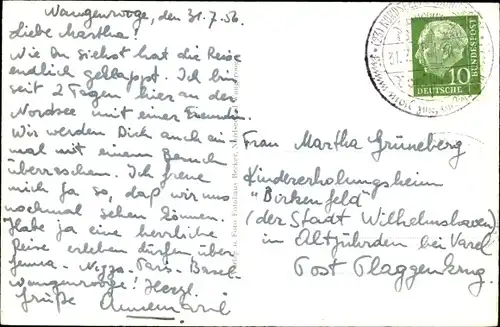 Wangerooge, den 31.7.56.
Liebe Martha!
Wie Du siehst hat die Reise
endlich geklappt. Ich bin
seit 2 Tagen hier an der
Nordsee mit einer Freundin.
Wir werden Dich auch ein
mal mit einem Besuch
überraschen. Ich freue
mich ja so, daß wir uns
nochmal sehen können.
Habe ja eine herrliche
Reise erleben dürfen über
Genua - Nizza - Paris - Basel
Wangerooge! Herzl.
Grüße Annemarie
10
DEUTSCHE
BUNDESPOST
Frau Martha Grüneberg
Kindererholungsheim
"Birkenfeld"
(der Stadt Wilhelmshaven)
in Altjührden bei Varel
Post Plaggenkrug.